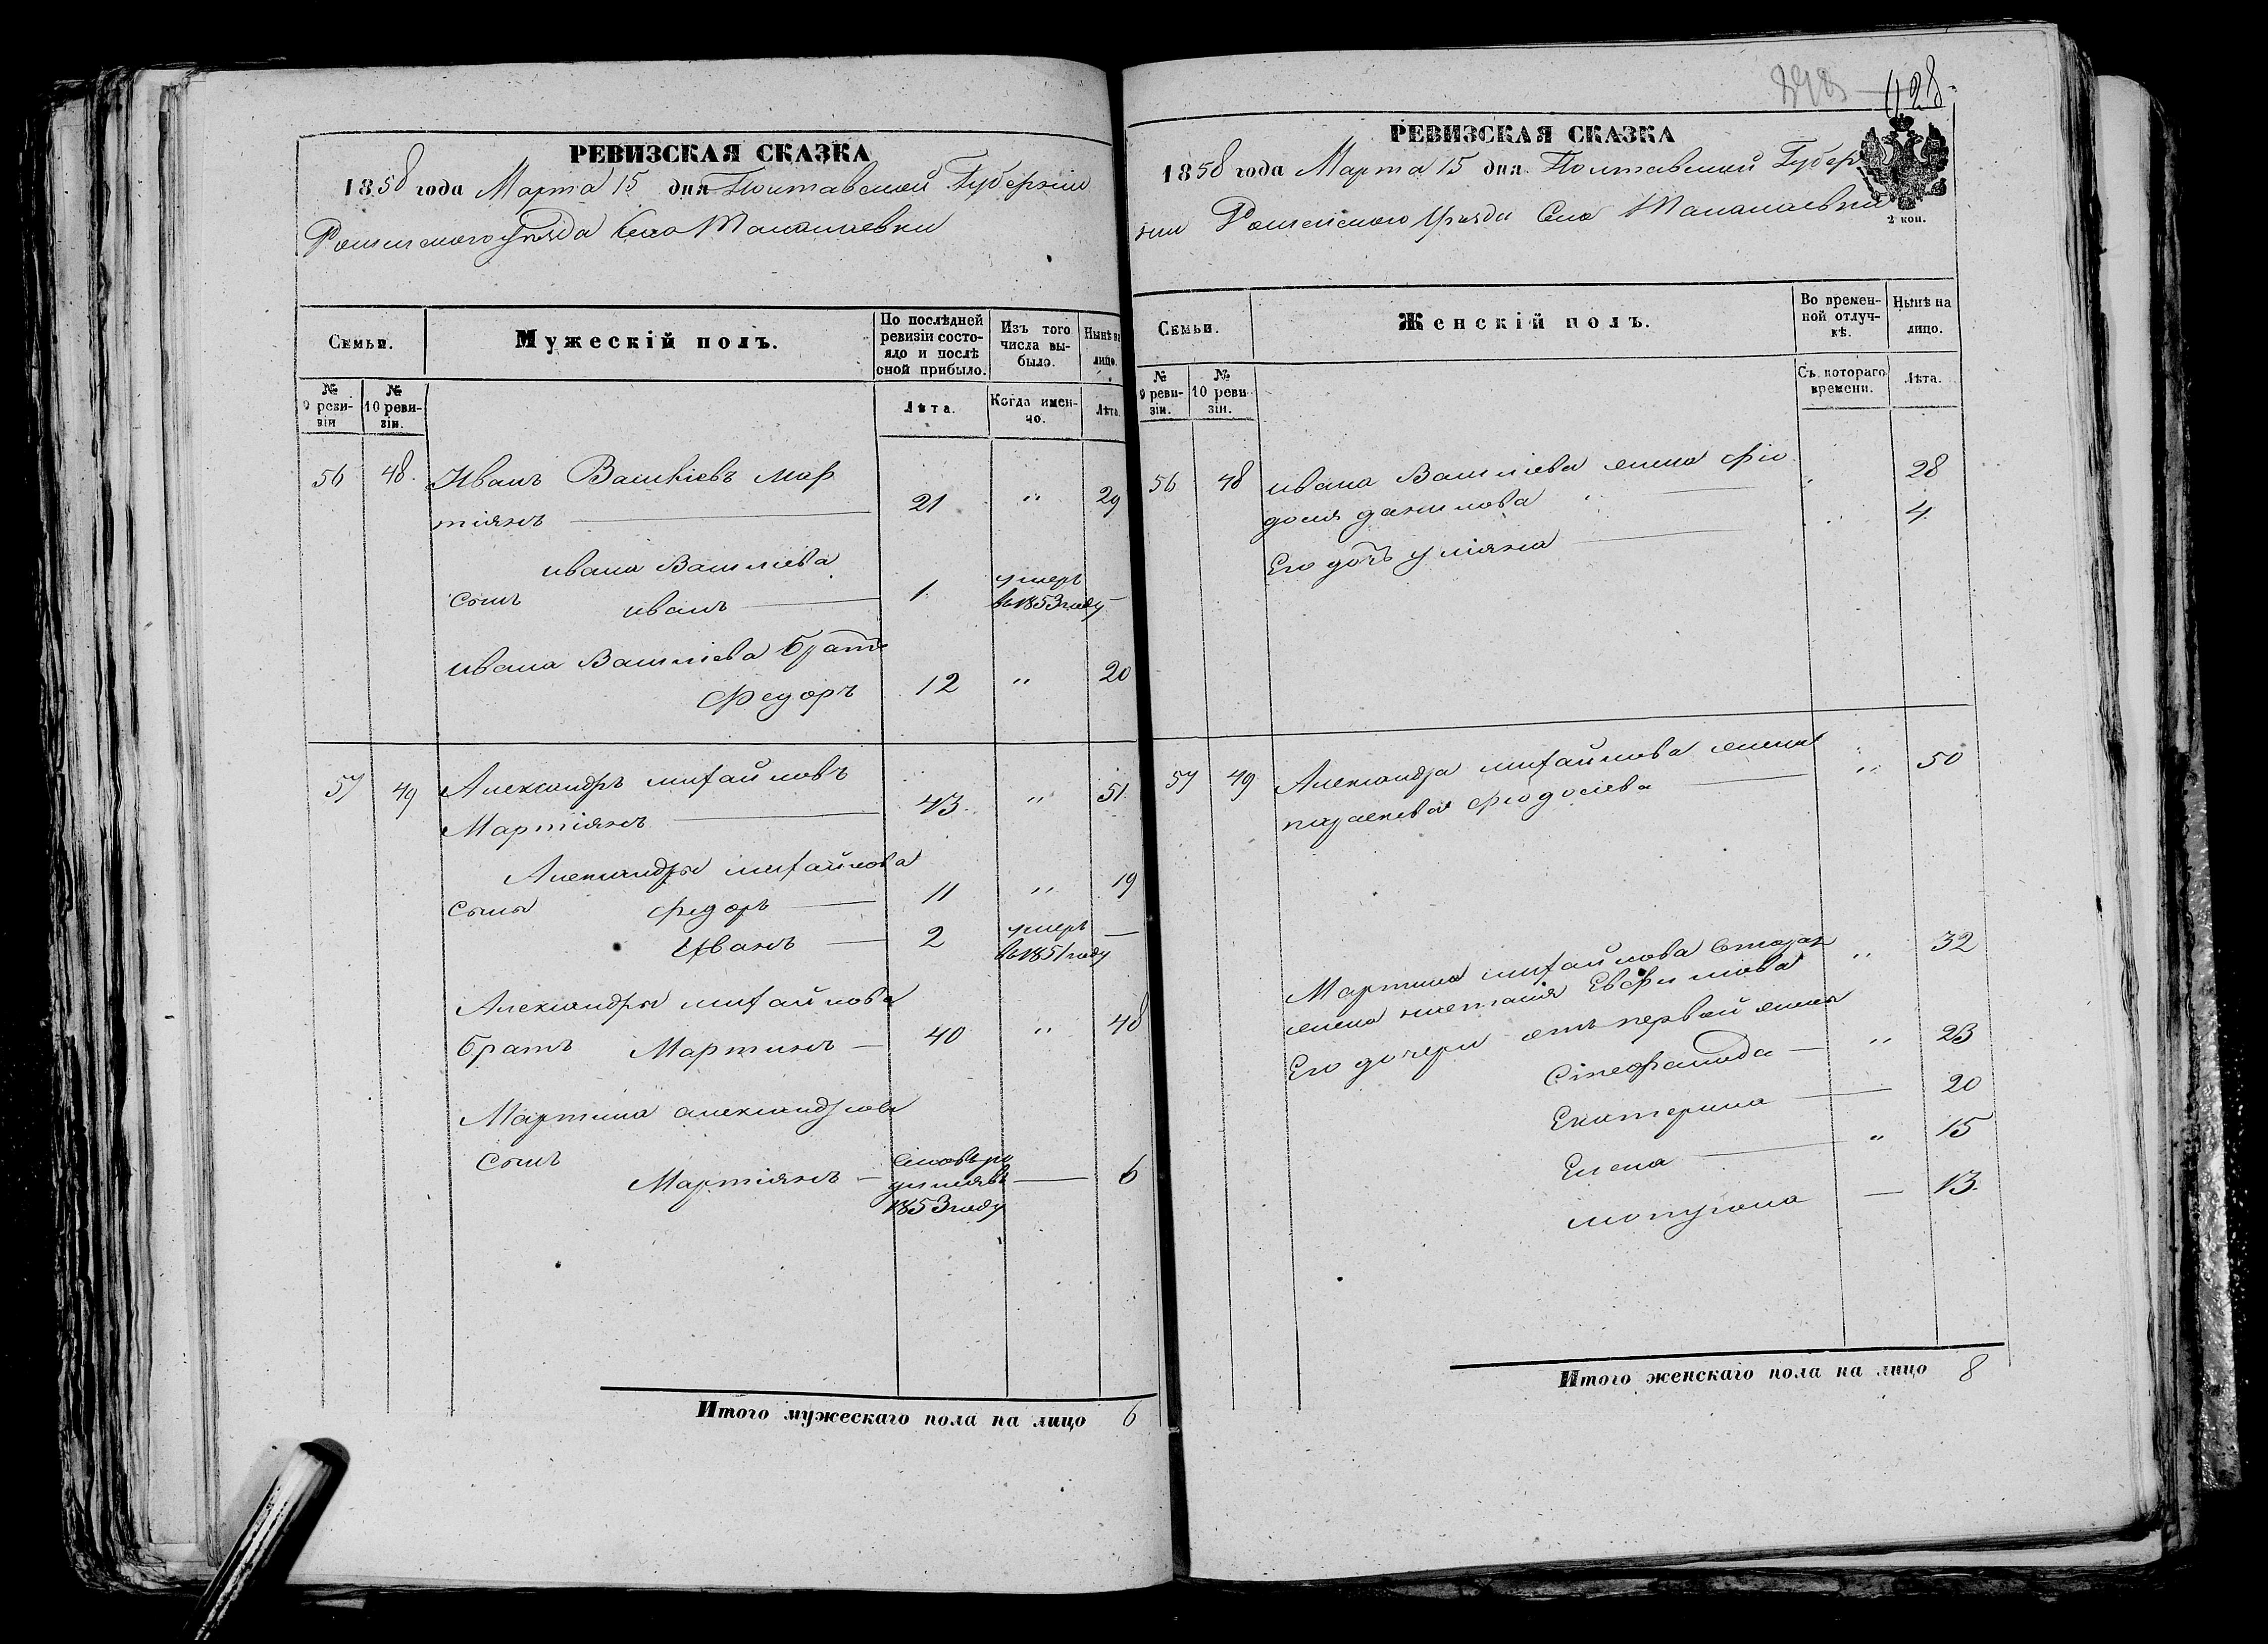 РЕВИЗСКАЯ СКАЗКА
1858 года Марта 15 дня Полтавской Губерніи
Роменского уезда Села Талалаевки
Семьи.
Мужескій полъ.
По послѣдней ревизіи состояло и послѣ оной прибыло.
Изъ того числа выбыло.
Нынѣ на лицо.
№ 9 ревизіи
№ 10 ревизіи.
Лѣта.
Когда именно.
Лѣта.
56 48. Иванъ Василіевъ Мар
тіянъ 21 " 29
ивана Василіева
Сынъ иванъ 1 умеръ в 1853 году —
ивана Василіева братъ
Федоръ 12 " 20
57 49 Александръ михайловъ
Мартіянъ 43. " 51
Александра михайлова
Сыны Федоръ 11 " 19
Иванъ 2 умеръ в 1851 году —
Александра михайлова
братъ Мартинъ 40 " 48
Мартина александрова
Сынъ
Мартіянъ — 1853 году — 6
Итого мужескаго пола на лицо 6
128
РЕВИЗСКАЯ СКАЗКА
1858 года Марта 15 дня. Полтавской Губер
ніи Роменского Уезда Села Талалаевки
2 коп.
Семьи.
Женскій полъ.
Во временной отлучкѣ.
Нынѣ на лицо.
№ 9 ревизіи.
№ 10 ревизіи.
Съ котораго времени.
Лѣта.
56 48 ивана Василіева жена Фео
досія данилова " 28
Его дочь уліяна 4
57 49 Александра михайлова жена
параскева Феодосіева " 50
Мартина михайлова
жена Евфимова " 32
Его дочери отъ первой жены
Стефанида — " 23
Екатерина — 20
Елена " 15
— 13.
Итого женскаго пола на лицо 8